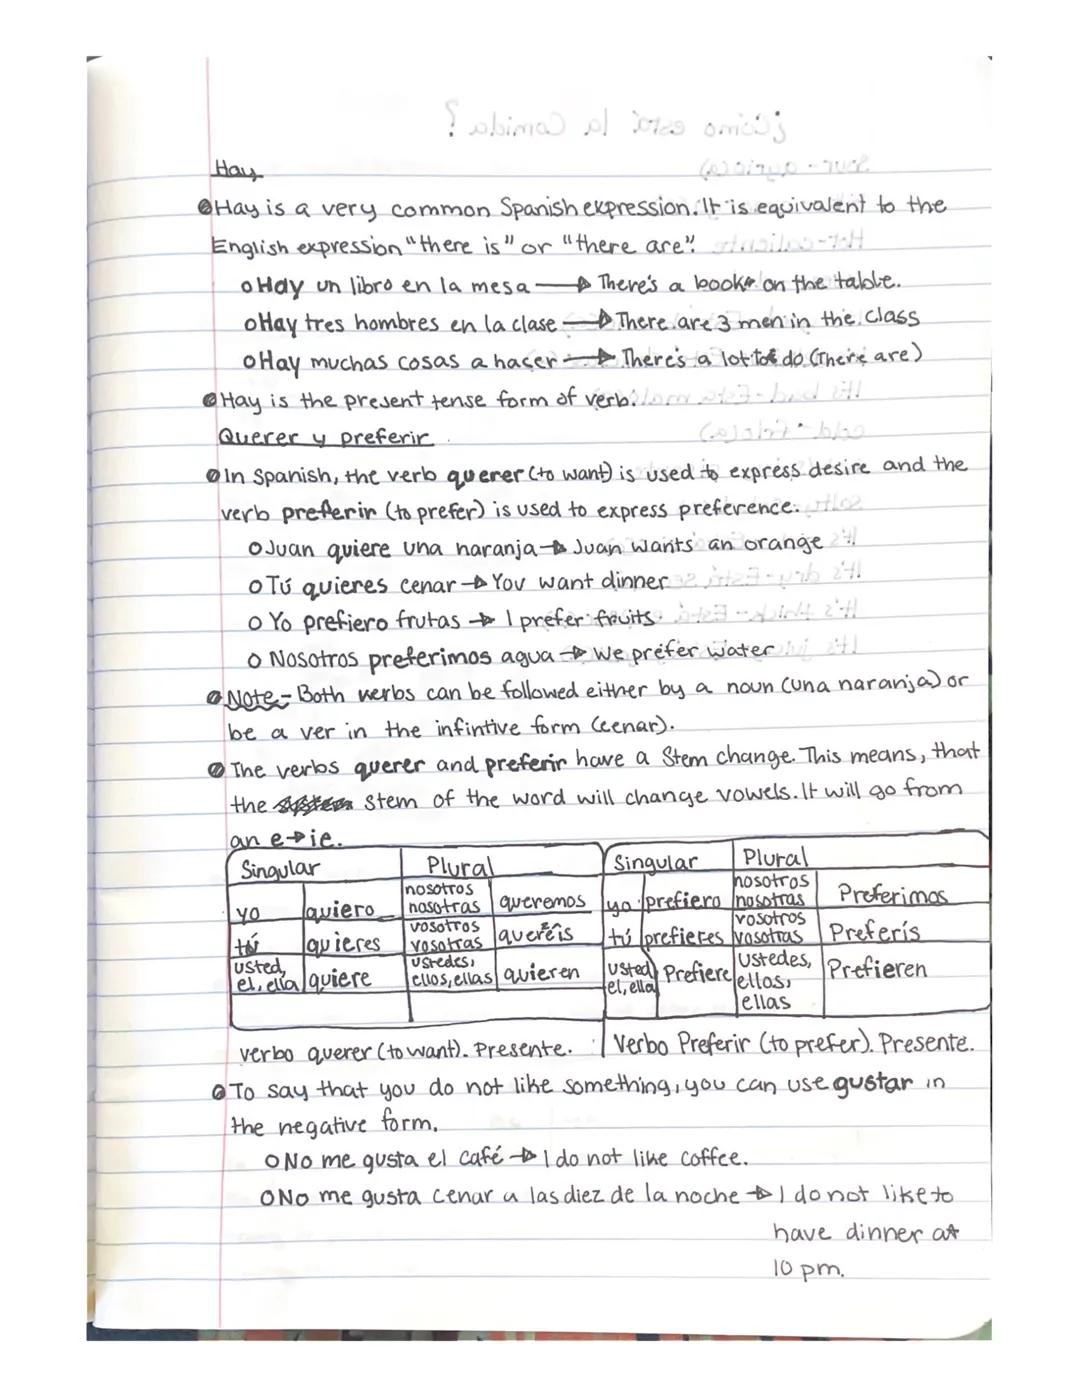 Hay
Hay is a very common Spanish expression. It is equivalent to the
English expression "there is" or "there are".
Hay un libro en la mesa → There's a book on the table.
Hay tres hombres en la clase → There are 3 men in the class
Hay muchas cosas a hacer → There's a lot to do (There are)
Hay is the present tense form of verb.
Querer y preferir
In Spanish, the verb querer (to want) is used to express desire and the
verb preferir (to prefer) is used to express preference.
Juan quiere una naranja → Juan wants an orange
Tú quieres cenar → You want dinner
Yo prefiero frutas → I prefer fruits
Nosotros preferimos agua → We prefer water
Note- Both verbs can be followed either by a noun (una naranja) or
be a ver in the infintive form (cenar).
The verbs querer and preferir have a Stem change. This means, that
the stem of the word will change vowels. It will go from
an e→ie.
Singular Plural Singular Plural
yo quiero nosotros nosotras queremos yo prefiero nosotros nosotras Preferimos
tú quieres vosotros vosotras queréis tú prefieres vosotros vosotras Preferís
usted, el, ella quiere ustedes, ellos, ellas quieren usted, el, ella Prefiere ustedes, ellos, ellas Prefieren
verbo querer (to want). Presente. Verbo Preferir (to prefer). Presente.
To say that you do not like something, you can use gustar in
the negative form.
No me gusta el café → I do not like coffee.
No me gusta cenar a las diez de la noche → I do not like to
have dinner at
10 pm.